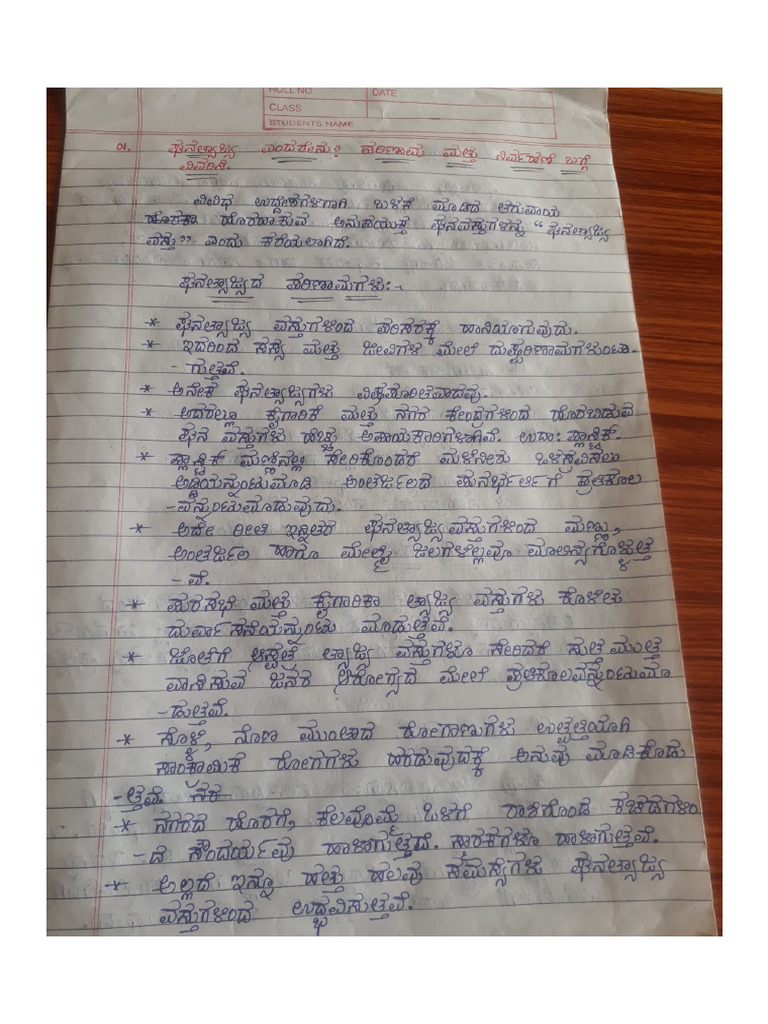 ROLL NO
DATE
CLASS
STUDENTS NAME
01. ಘನತ್ಯಾಜ್ಯ ಎಂದರೇನು? ಪರಿಣಾಮ ಮತ್ತು ನಿರ್ವಹಣೆ ಬಗ್ಗೆ
ವಿವರಿಸಿ.
ವಿವಿಧ ಉದ್ದೇಶಗಳಿಗಾಗಿ ಬಳಕೆ ಮಾಡಿದ ತರುವಾಯ
ಹೊರಕ್ಕೆ ಹೊರಹಾಕುವ ಅನುಪಯುಕ್ತ ಘನವಸ್ತುಗಳನ್ನು “ಘನತ್ಯಾಜ್ಯ
ವಸ್ತು” ಎಂದು ಕರೆಯಲಾಗಿದೆ.
ಘನತ್ಯಾಜ್ಯದ ಪರಿಣಾಮಗಳು:-
* ಘನತ್ಯಾಜ್ಯ ವಸ್ತುಗಳಿಂದ ಪರಿಸರಕ್ಕೆ ಹಾನಿಯಾಗುವುದು.
* ಇದರಿಂದ ಸಸ್ಯ ಮತ್ತು ಜೀವಿಗಳ ಮೇಲೆ ದುಷ್ಪರಿಣಾಮಗಳುಂಟಾ-
- ಗುತ್ತವೆ.
* ಅನೇಕ ಘನತ್ಯಾಜ್ಯಗಳು ವಿಷಪೂರಿತವಾದವು.
* ಅದರಲ್ಲೂ ಕೈಗಾರಿಕೆ ಮತ್ತು ನಗರ ಕೇಂದ್ರಗಳಿಂದ ಹೊರಬಿಡುವ
ಘನ ವಸ್ತುಗಳು ಹೆಚ್ಚು ಅಪಾಯಕಾರಿಗಳಾಗಿವೆ. ಉದಾ: ಪ್ಲಾಸ್ಟಿಕ್.
* ಪ್ಲಾಸ್ಟಿಕ್ ಮಣ್ಣಿನಲ್ಲಿ ಸೇರಿಕೊಂಡರೆ ಮಳೆನೀರು ಒಳಸ್ರವಿಸಲು
ಅಡ್ಡಿಯನ್ನುಂಟುಮಾಡಿ ಅಂತರ್ಜಲದ ಪುನರ್ಭರ್ತಿಗೆ ಪ್ರತಿಕೂಲ
- ವನ್ನುಂಟುಮಾಡುವುದು.
* ಅದೇ ರೀತಿ ಇನ್ನಿತರ ಘನತ್ಯಾಜ್ಯವಸ್ತುಗಳಿಂದ ಮಣ್ಣು,
ಅಂತರ್ಜಲ ಹಾಗೂ ಮೇಲ್ಮೈ ಜಲಗಳೆಲ್ಲವೂ ಮಾಲಿನ್ಯಗೊಳ್ಳುತ್ತ
- ವೆ.
* ಪುರಸಭೆ ಮತ್ತು ಕೈಗಾರಿಕಾ ತ್ಯಾಜ್ಯ ವಸ್ತುಗಳು ಕೊಳೆತು
ದುರ್ವಾಸನೆಯನ್ನುಂಟು ಮಾಡುತ್ತವೆ.
* ಜೊತೆಗೆ ಆಸ್ಪತ್ರೆ ತ್ಯಾಜ್ಯ ವಸ್ತುಗಳೂ ಸೇರಿದರೆ ಸುತ್ತ ಮುತ್ತ
ವಾಸಿಸುವ ಜನರ ಆರೋಗ್ಯದ ಮೇಲೆ ಪ್ರತಿಕೂಲವನ್ನುಂಟುಮಾ
- ಡುತ್ತವೆ.
* ಸೊಳ್ಳೆ, ನೊಣ ಮುಂತಾದ ರೋಗಾಣುಗಳು ಉತ್ಪತ್ತಿಯಾಗಿ
ಸಾಂಕ್ರಾಮಿಕ ರೋಗಗಳು ಹರಡುವುದಕ್ಕೆ ಅನುವು ಮಾಡಿಕೊಡು
- ತ್ತವೆ.
* ನಗರದ ಹೊರಗೆ, ಕೆಲವೊಮ್ಮೆ ಒಳಗೆ ರಾಶಿಗೊಂಡ ಕಚಡಗಳಿಂ
- ದ ಸೌಂದರ್ಯವು ಹಾಳಾಗುತ್ತದೆ. ಸ್ಮಾರಕಗಳೂ ಹಾಳಾಗುತ್ತವೆ.
* ಅಲ್ಲದೆ ಇನ್ನೂ ಹತ್ತು ಹಲವು ಸಮಸ್ಯೆಗಳು ಘನತ್ಯಾಜ್ಯ
ವಸ್ತುಗಳಿಂದ ಉದ್ಭವಿಸುತ್ತವೆ.